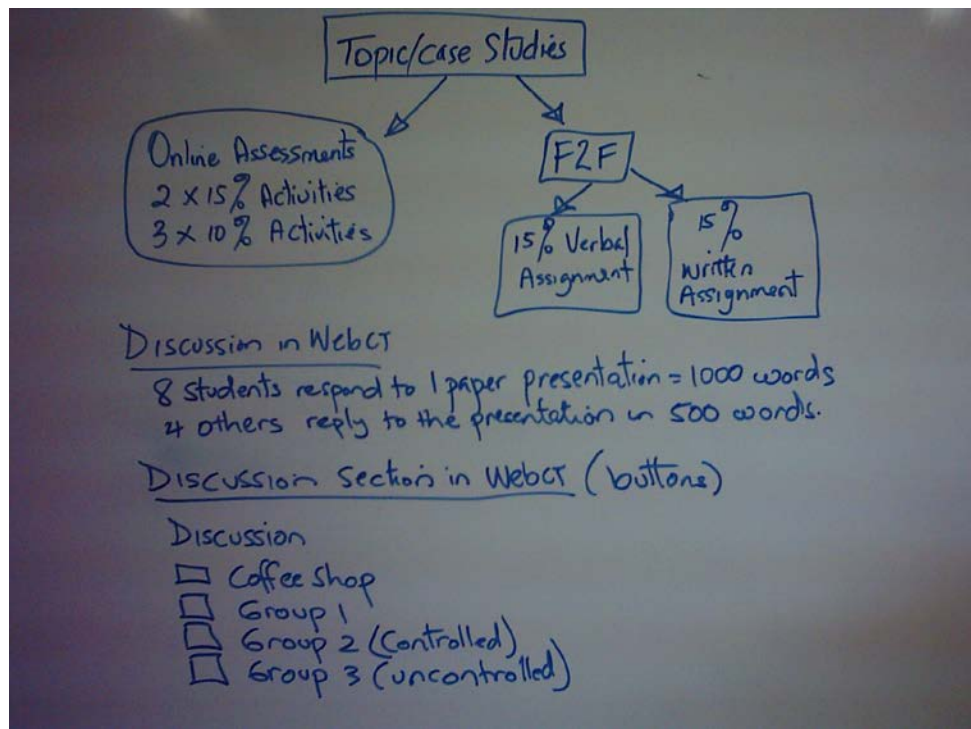 Topic/case Studies
Online Assessments
2 x 15% Activities
3 x 10% Activities
F2F
15% Verbal
Assignment
15%
written
Assignment
Discussion in WebCT
8 students respond to 1 paper presentation = 1000 words
4 others reply to the presentation in 500 words.
Discussion Section in WebCT (buttons)
Discussion
Coffee Shop
Group 1
Group 2 (Controlled)
Group 3 (uncontrolled)